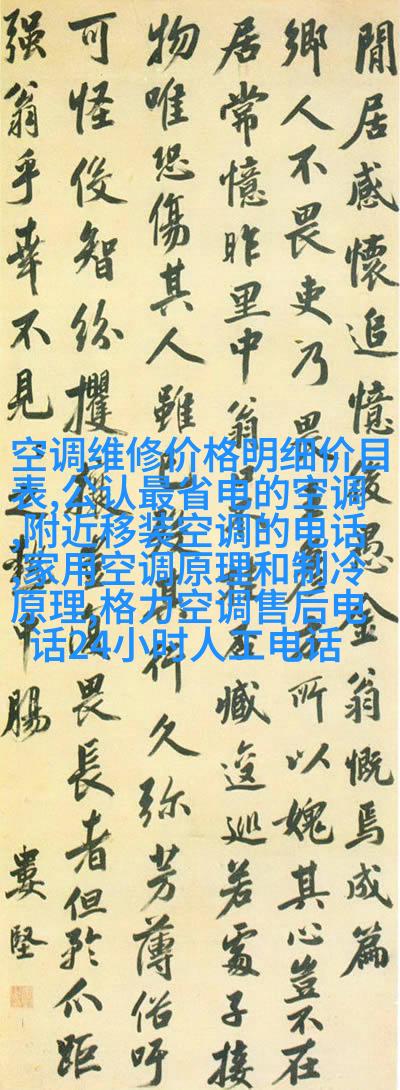 閒居感懷追憶後愚金翁慨焉成篇
鄉人不畏吏乃畏 所以媿其心豈不在
居常憶昨里中翁 臧逡巡若處子接
物唯恐傷其人雖已 其行久弥芳薄俗吁
可怪俊智紛攫 畏長者但矜爪距
强翁乎幸不見 中腸
婁堅
空调维修价格明细价目
表,公认最省电的空调
,附近移装空调的电话,
家用空调原理和制冷
原理,格力空调售后电
话24小时人工电话